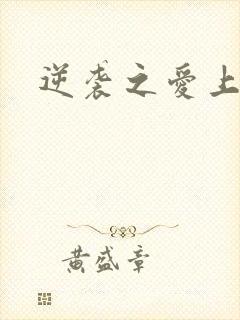 逆袭之爱上
黄盛章